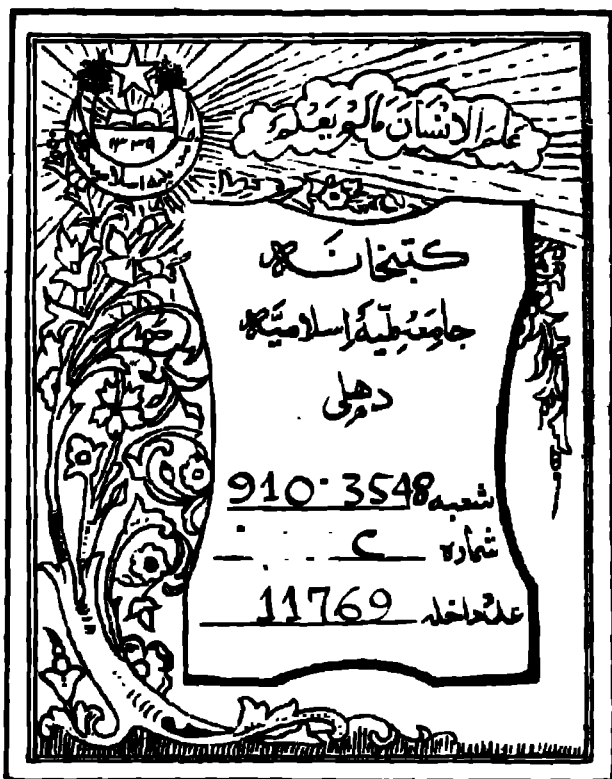 علم الانسان مالم يعلم
۱۳۳۹
کتبخانہ
جامعہ ملیہ اسلامیہ
دھلی
شعبہ 910.3548
شمارہ C
عدد داخلہ 11769